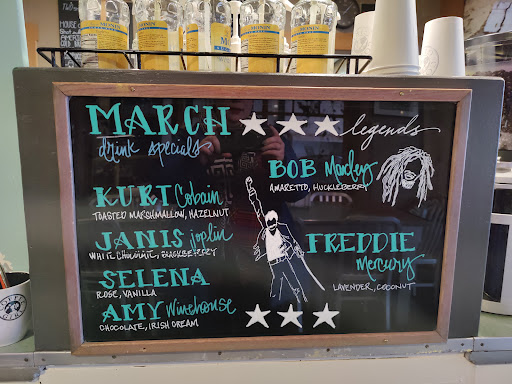 MONIN MONIN MONIN
MARCH legends
drink specials
BOB Marley
AMARETTO, HUCKLEBERRY
KURT Cobain
TOASTED MARSHMALLOW, HAZELNUT
JANIS joplin
WHITE CHOCOLATE, BLACKBERRY
FREDDIE
mercury
LAVENDER, COCONUT
SELENA
ROSE, VANILLA
AMY Winehouse
CHOCOLATE, IRISH CREAM